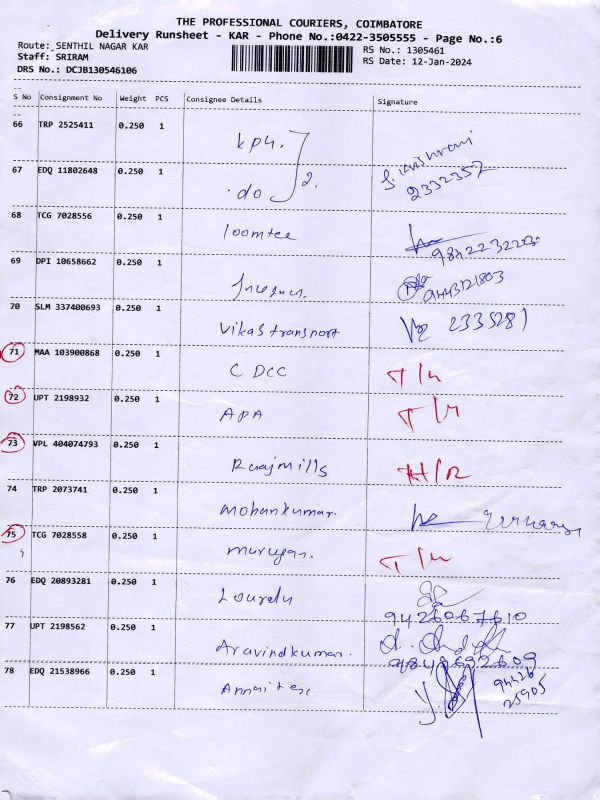 THE PROFESSIONAL COURIERS, COIMBATORE
Delivery Runsheet - KAR - Phone No.:0422-3505555 - Page No.:6
Route: SENTHIL NAGAR KAR
RS No.: 1305461
Staff: SRIRAM
RS Date: 12-Jan-2024
DRS No.: DCJB130546106
S No Consignment No Weight PCS Consignee Details Signature
66 TRP 2525411 0.250 1 kpn.
67 EDQ 11802648 0.250 1 .do 2. 2332357
68 TCG 7028556 0.250 1 loomtec
69 DPI 10658662 0.250 1
70 SLM 337400693 0.250 1 Vikas transport 2335281
71 MAA 103900868 0.250 1 C DCC
72 UPT 2198932 0.250 1 APA
73 VPL 404074793 0.250 1 Raajmills H/R
74 TRP 2073741 0.250 1 Mohankumar.
75 TCG 7028558 0.250 1 murugan.
76 EDQ 20893281 0.250 1 Lourdu
77 UPT 2198562 0.250 1 Aravindkumar.
78 EDQ 21538966 0.250 1 94426
25905